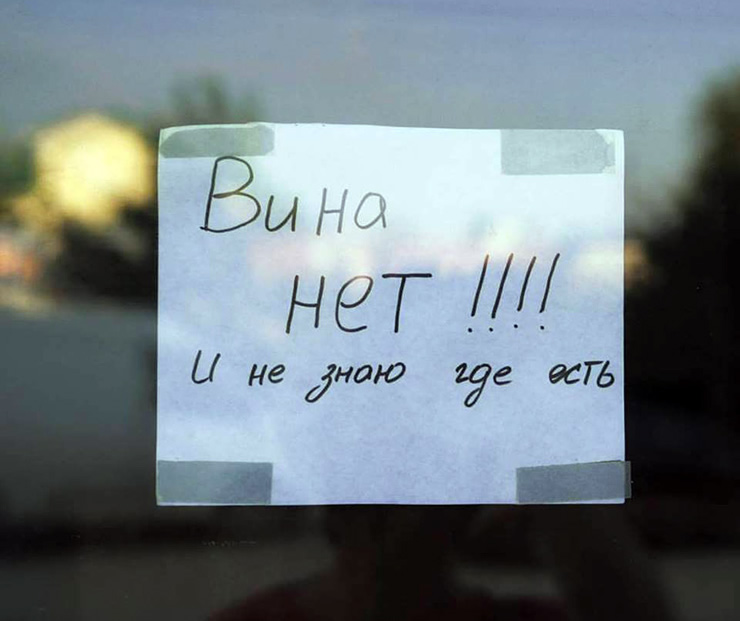 Вина
нет !!!!
И не знаю где есть